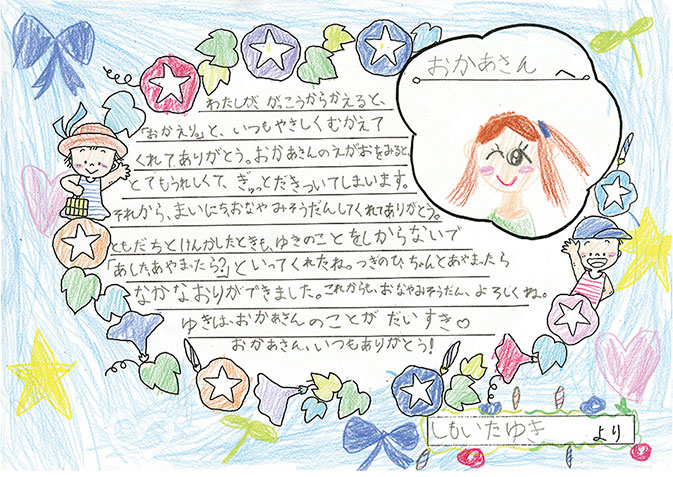 おかあさんへ
わたしが がっこうからかえると、
「おかえり。」と、いつもやさしくむかえて
くれてありがとう。おかあさんのえがおをみると、
とてもうれしくて、ぎゅっとだきついてしまいます。
それから、まいにちおなやみそうだんしてくれてありがとう。
ともだちとけんかしたときも、ゆきのことをしからないで
「あした、あやまったら？」といってくれたね。つぎのひ、ちゃんとあやまったら
なかなおりができました。これからも、おなやみそうだん、よろしくね。
ゆきは、おかあさんのことが だいすき♡
おかあさん、いつもありがとう！
しもいたゆき より